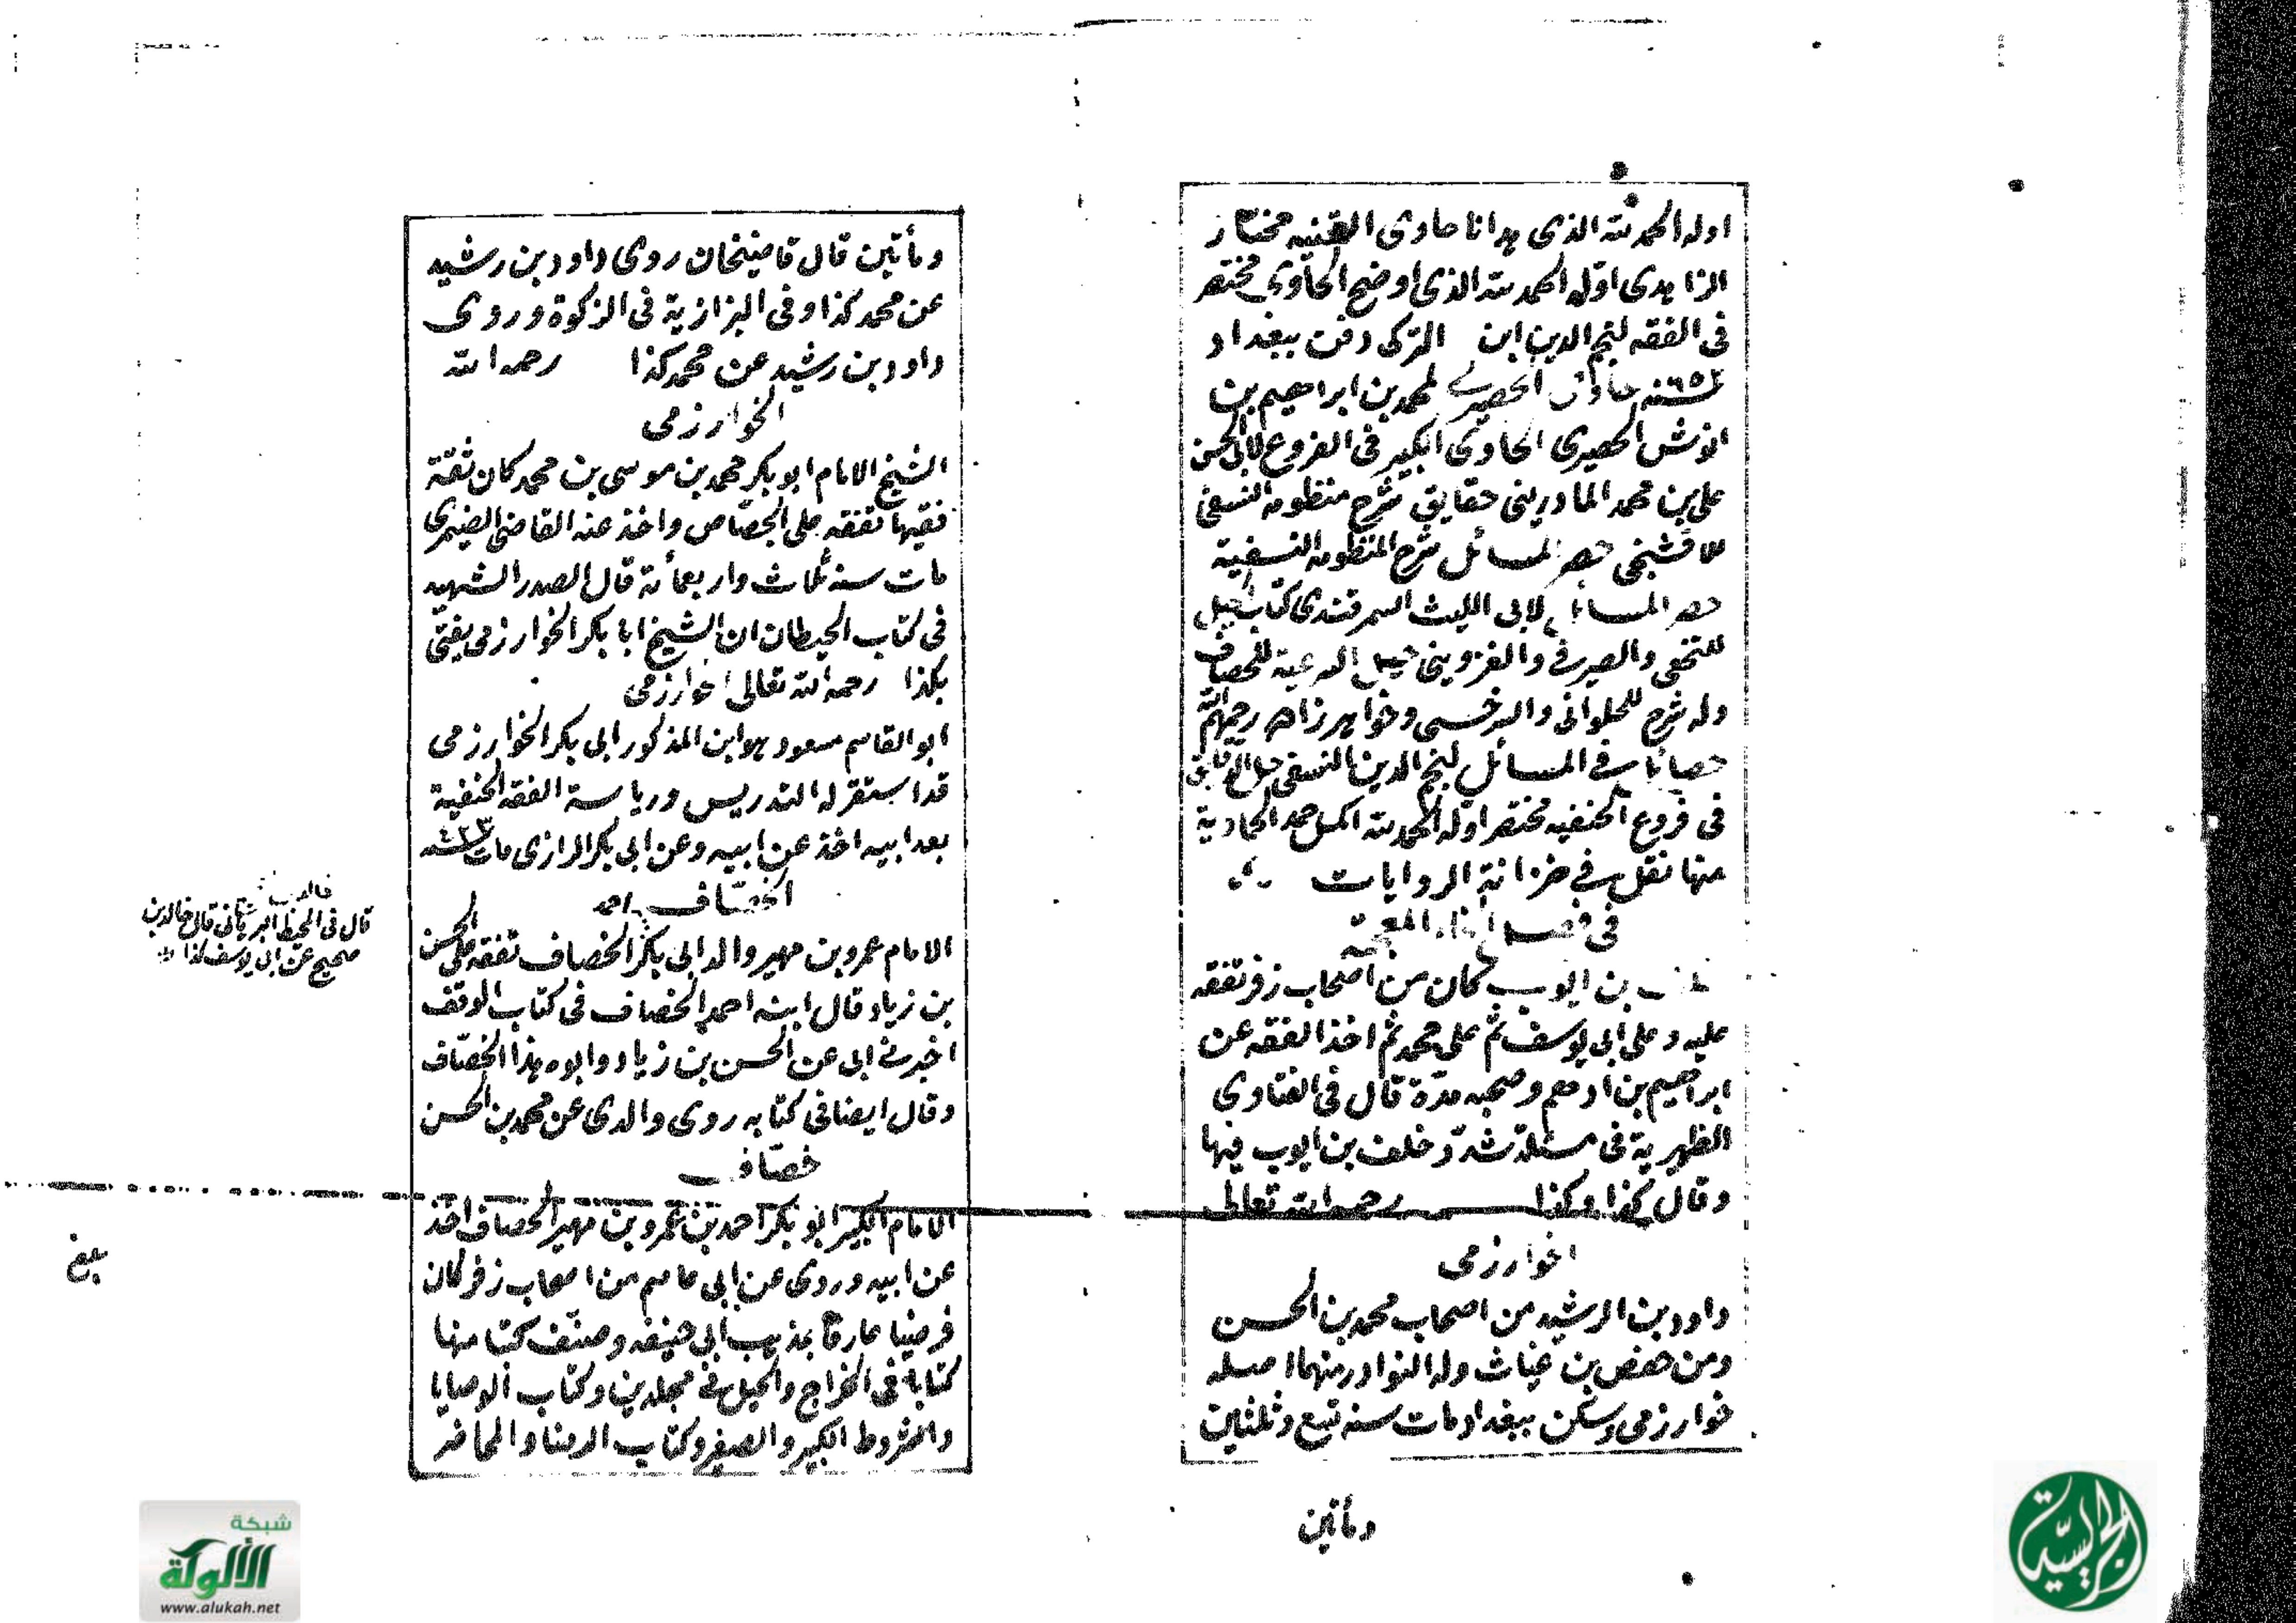 اوله الحمد لله الذى هدانا حاوى القنيه مختار
الزاهدى اوّله الحمد لله الذى اوضح الحاوى مختصر
فى الفقه لنجم الدين ابن التركى دفن ببغداد
سنة ٦٥٢ حاوى الحصيرى لمحمد بن ابراهيم بن
انوش الحصيرى الحاوى الكبير فى الفروع لابى الحسن
على بن محمد حقايق شرح منظومة النسفى
للافشنجى حصر المسائل شرح المنظومه النسفية
حصر المسائل لابى الليث السمرقندى كتاب الحيل
للنخعى والصيرفى والقزوينى حيل الشرعية للخصاف
وله شرح للحلوانى والسرخسى وخواهرزاده رحمهم الله
فى المسائل لنجم الدين النسفى
فى فروع الحنفيه مختصر اوله الحمد لله اكمل حمد
منها نقل فى خزانة الروايات
فى فصل الخاء المعجمة
خلف بن ايوب كان من اصحاب زفر تفقه
عليه وعلى ابى يوسف ثم على محمد ثم اخذ الفقه عن
ابراهيم بن ادهم وصحبه مدّة قال فى الفتاوى
الظهيرية فى مسئلة شدّد خلف بن ايوب فيها
وقال كذا وكذا رحمه الله تعالى
الخوارزمى
داود بن الرشيد من اصحاب محمد بن الحسن
ومن حفص بن غياث وله النوادر منهما اصله
خوارزمى وسكن ببغداد مات سنه تسع وثلثين
ومأتين
ومأتين قال قاضيخان روى داود بن رشيد
عن محمد كذا وفى البزازية فى الزكوة وروى
داود بن رشيد عن محمد كذا رحمه الله
الخوارزمى
الشيخ الامام ابو بكر محمد بن موسى بن محمد كان ثقة
فقيها تفقه على الجصّاص واخذ عنه القاضى الصيمرى
مات سنه ثلاث واربعمأئة قال الصدر الشهيد
فى كتاب الحيطان ان الشيخ ابا بكر الخوارزمى يفتى
بكذا رحمه الله تعالى الخوارزمى
ابو القاسم مسعود هو ابن المذكور ابى بكر الخوارزمى
قد استقر له التدريس ورياسة الفقه الحنفية
بعد ابيه اخذ عن ابيه وعن ابى بكر الرازى مات
الخصّاف احمد
الامام عمرو بن مهير والد ابى بكر الخصاف تفقه على الحسن
بن زياد قال ابنه احمد الخصاف فى كتاب الوقف
اخبرنى ابى عن الحسن بن زياد وابوه هذا الخصّاف
وقال ايضا فى كتابه روى والدى عن محمد بن الحسن
خصّاف
الامام الكبير ابو بكر احمد بن عمرو بن مهير الخصاف اخذ
عن ابيه وروى عن ابى عاصم من اصحاب زفر كان
فرضيا عارفا بمذهب ابى حنيفه وصنّف كتبا منها
كتابه فى الخراج والحيل فى مجلدين وكتاب الوصايا
والشروط الكبير والصغير وكتاب الرضاع والمحاضر
قال فى المحيط البرهانى قال خالد بن
صحيح عن ابى يوسف كذا
بلغ
شبكة
الألوكة
www.alukah.net